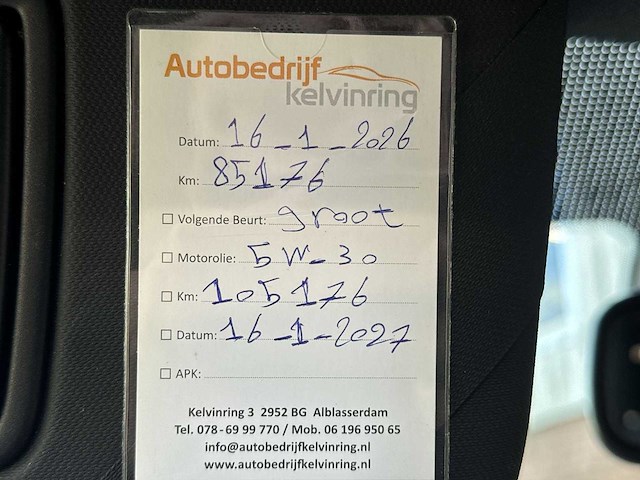 Autobedrijf
kelvinring
Datum: 16-1-2026
Km: 85176
Volgende Beurt: groot
Motorolie: 5W-30
Km: 105176
Datum: 16-1-2027
APK:
Kelvinring 3 2952 BG Alblasserdam
Tel. 078-69 99 770 / Mob. 06 196 950 65
info@autobedrijfkelvinring.nl
www.autobedrijfkelvinring.nl